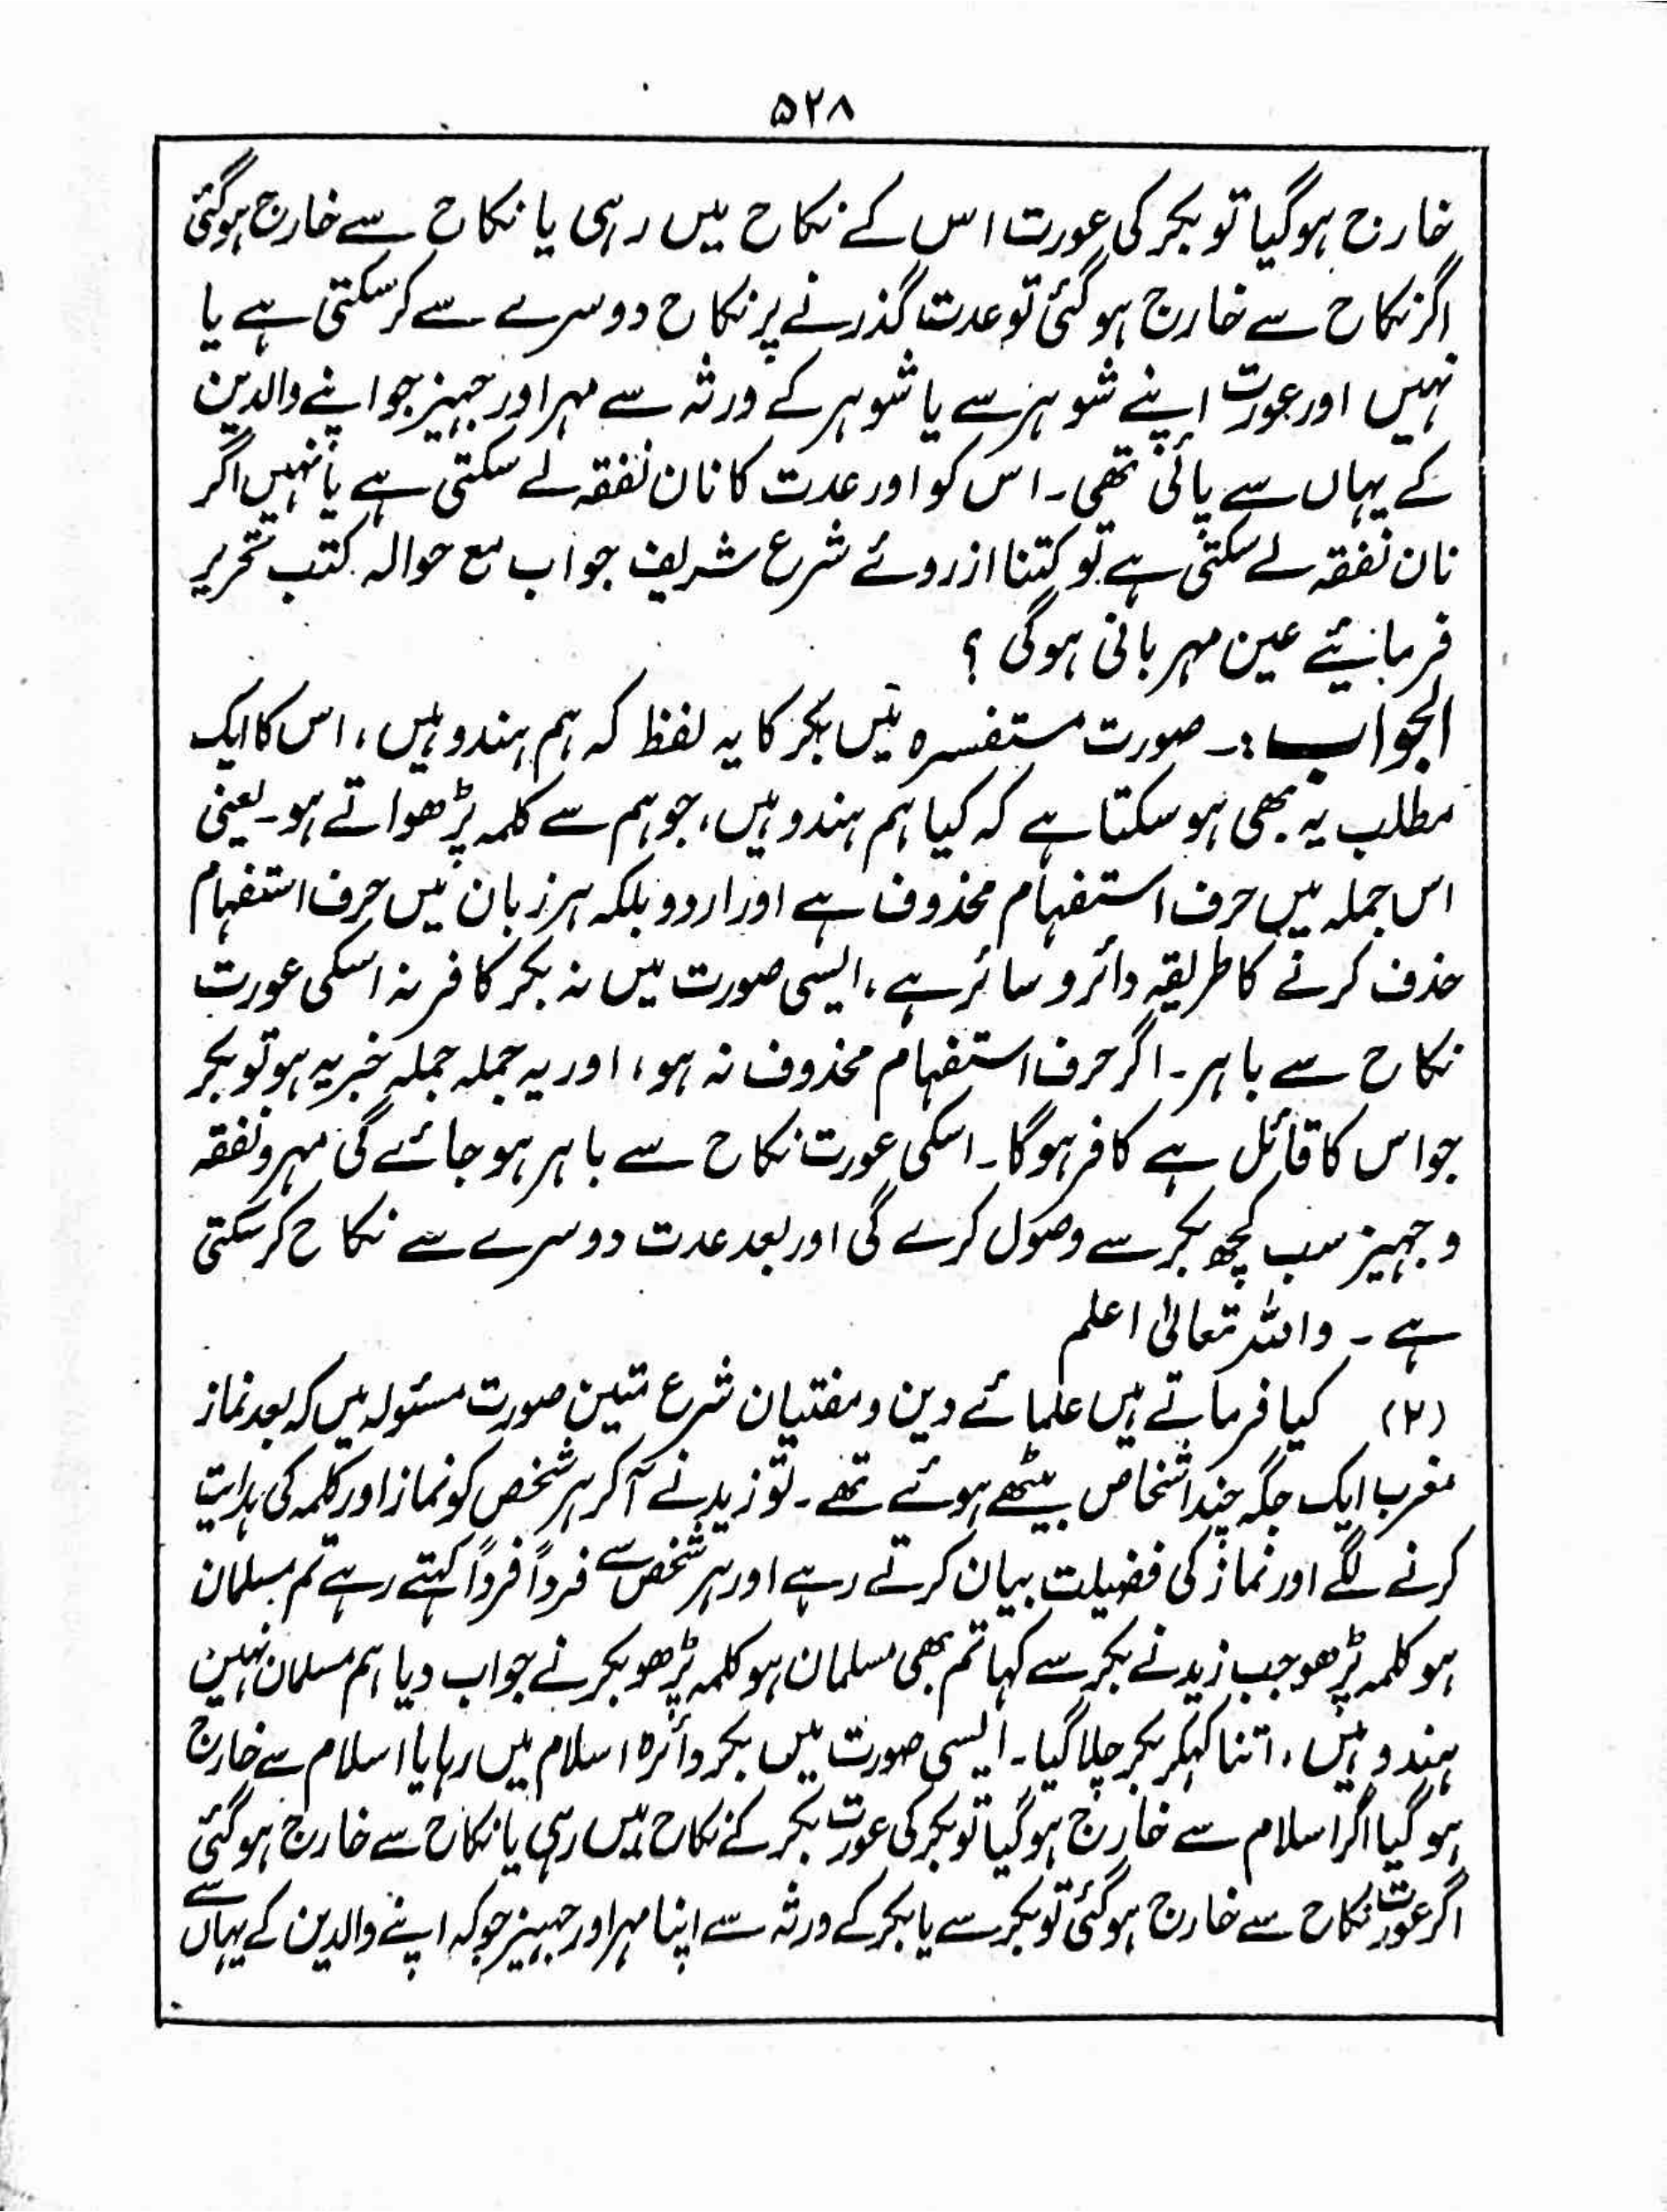 ۵۲۸
خارج ہوگیا تو بکر کی عورت اس کے نکاح میں رہی یا نکاح سے خارج ہوگئی
اگر نکاح سے خارج ہوگئی تو عدت گذرنے پر نکاح دوسرے سے کرسکتی ہے یا
نہیں اور عورت اپنے شوہر سے یا شوہر کے ورثہ سے مہر اور جہیز جو اپنے والدین
کے یہاں سے پائی تھی۔ اس کو اور عدت کا نان نفقہ لے سکتی ہے یا نہیں اگر
نان نفقہ لے سکتی ہے تو کتنا ازروئے شرع شریف جواب مع حوالہ کتب تحریر
فرمائیے عین مہربانی ہوگی ؟
الجواب :۔ صورت مستفسرہ میں بکر کا یہ لفظ کہ ہم ہندو ہیں، اس کا ایک
مطلب یہ بھی ہوسکتا ہے کہ کیا ہم ہندو ہیں، جو ہم سے کلمہ پڑھواتے ہو۔ یعنی
اس جملہ میں حرف استفہام محذوف ہے اور اردو بلکہ ہر زبان میں حرف استفہام
حذف کرنے کا طریقہ دائر و سائر ہے، ایسی صورت میں نہ بکر کافر نہ اسکی عورت
نکاح سے باہر۔ اگر حرف استفہام محذوف نہ ہو، اور یہ جملہ جملہ خبریہ ہو تو بکر
جو اس کا قائل ہے کافر ہوگا۔ اسکی عورت نکاح سے باہر ہوجائے گی مہر و نفقہ
و جہیز سب کچھ بکر سے وصول کرے گی اور بعد عدت دوسرے سے نکاح کرسکتی
ہے۔ واللہ تعالیٰ اعلم
(۲) کیا فرماتے ہیں علمائے دین و مفتیان شرع متین صورت مسئولہ میں کہ بعد نماز
مغرب ایک جگہ چند اشخاص بیٹھے ہوئے تھے۔ تو زید نے آکر ہر شخص کو نماز اور کلمہ کی ہدایت
کرنے لگے اور نماز کی فضیلت بیان کرتے رہے اور ہر شخص سے فرداً فرداً کہتے رہے تم مسلمان
ہو کلمہ پڑھو جب زید نے بکر سے کہا تم بھی مسلمان ہو کلمہ پڑھو بکر نے جواب دیا ہم مسلمان نہیں
ہندو ہیں، اتنا کہکر بکر چلا گیا۔ ایسی صورت میں بکر دائرہ اسلام میں رہا یا اسلام سے خارج
ہوگیا اگر اسلام سے خارج ہوگیا تو بکر کی عورت بکر کے نکاح میں رہی یا نکاح سے خارج ہوگئی
اگر عورت نکاح سے خارج ہوگئی تو بکر سے یا بکر کے ورثہ سے اپنا مہر اور جہیز جو کہ اپنے والدین کے یہاں سے